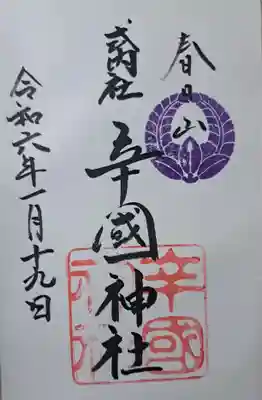 春日山
式内社
辛國神社
令和六年一月十九日
辛國
神社